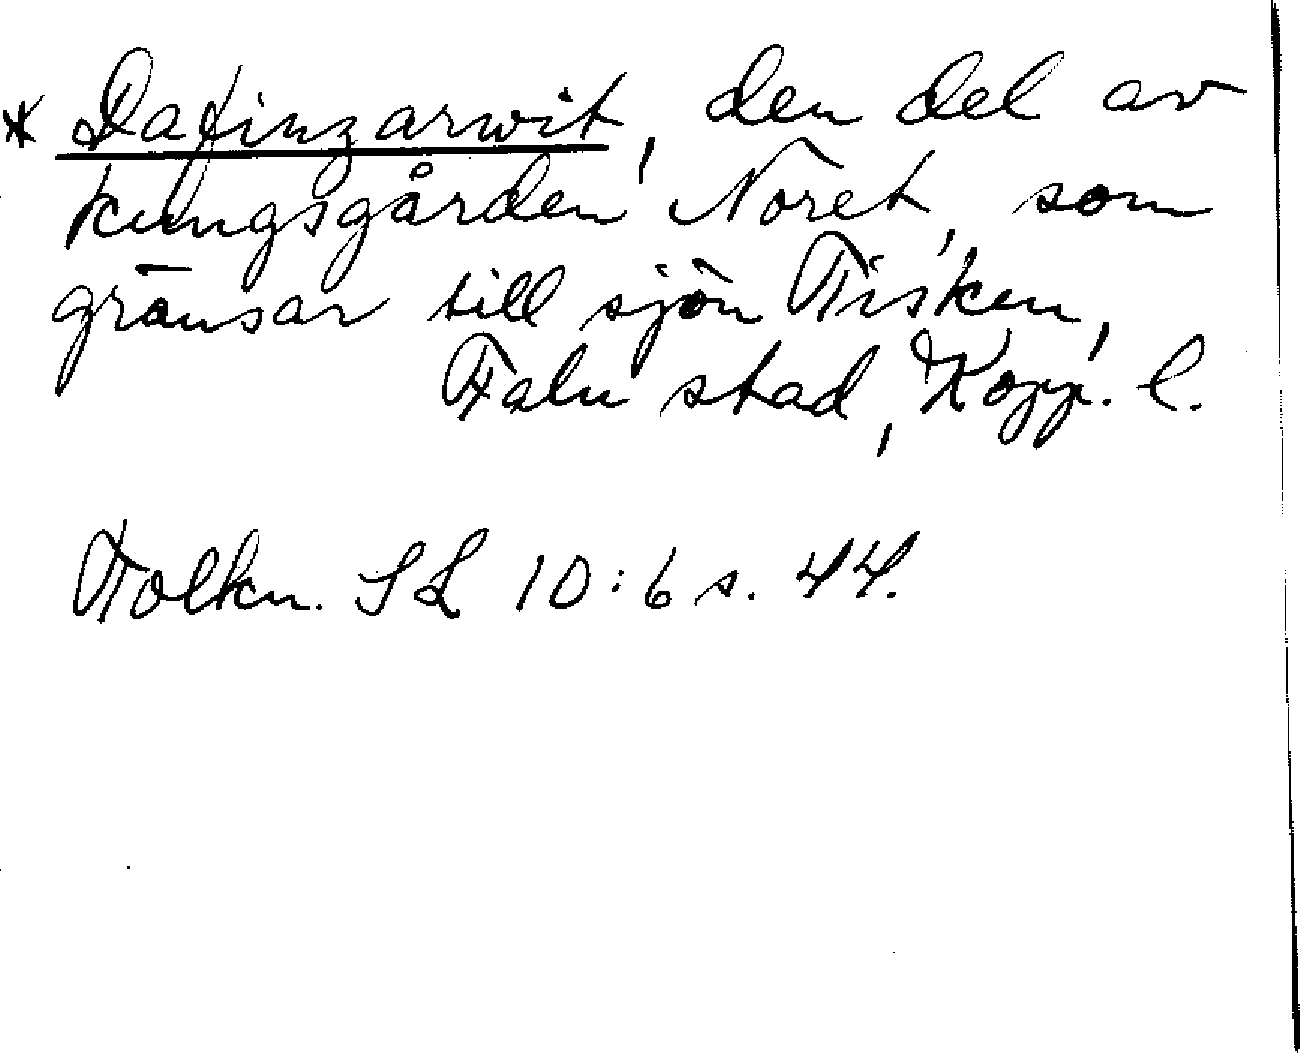 * Dafinzarwit, den del av
kungsgården Noret, som
gränsar till sjön Tisken,
Falu stad, Kopp. l.
Folkn. SL 10:6 s. 44.